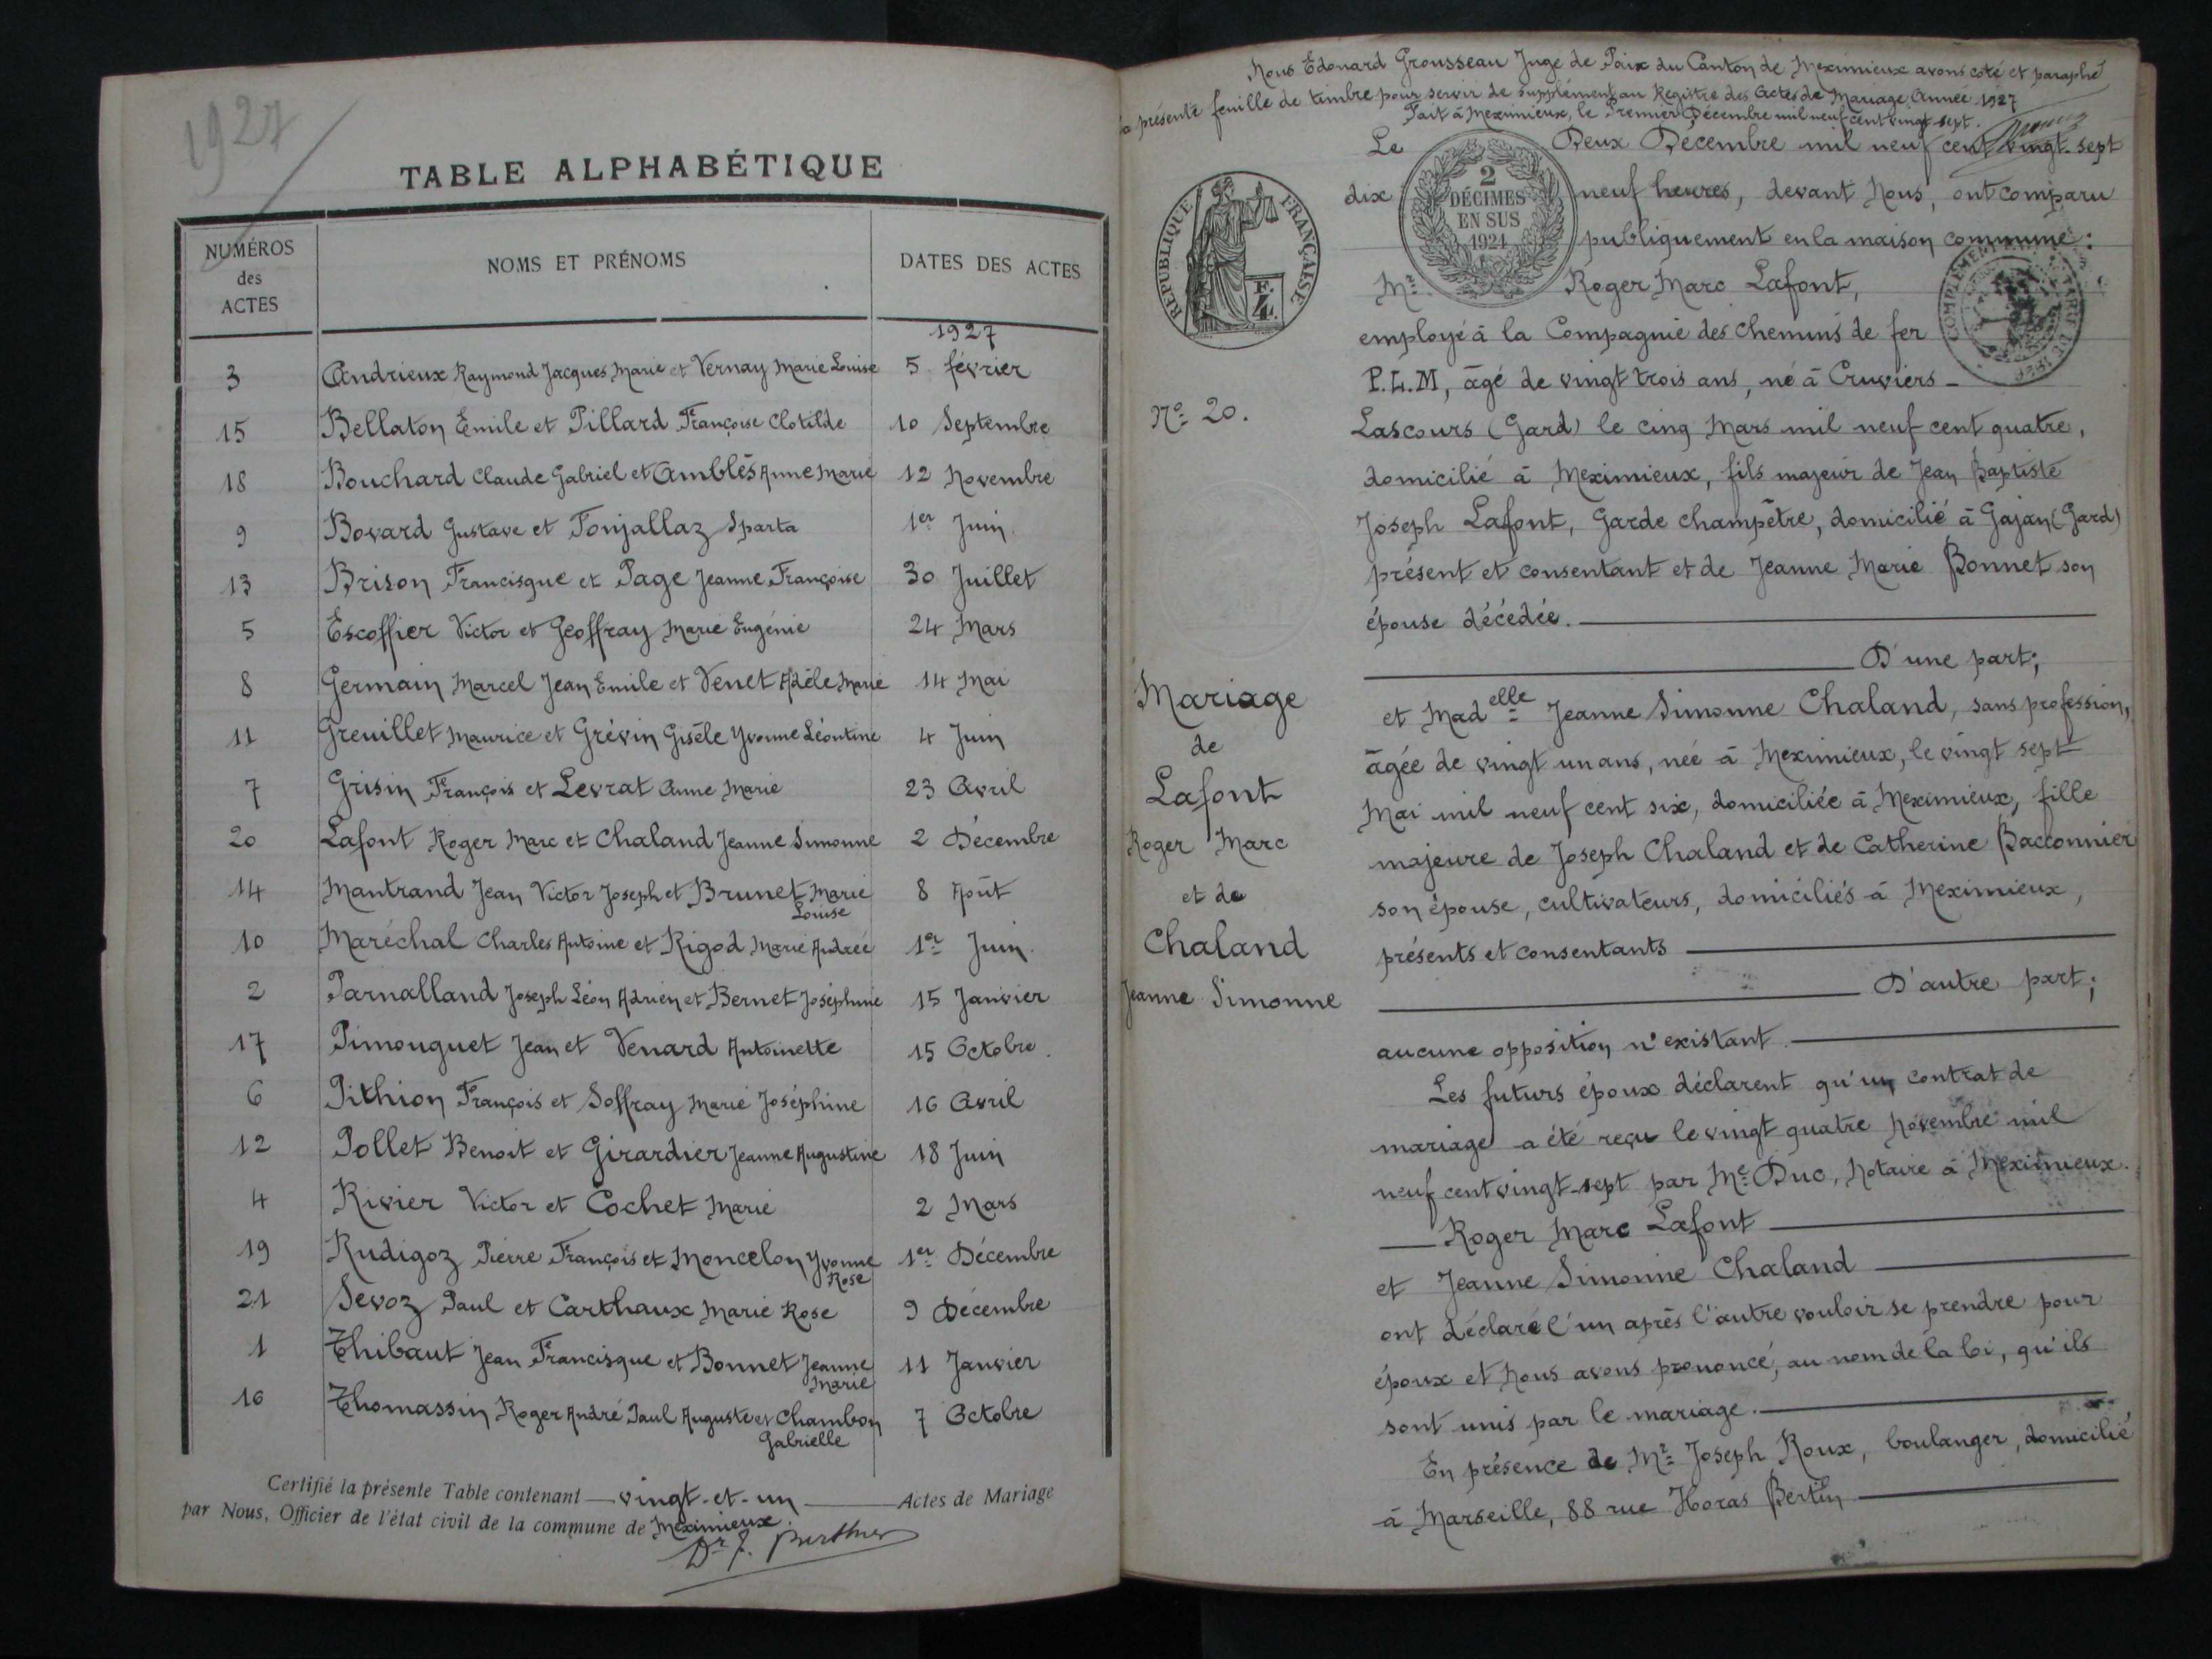 1927
TABLE ALPHABÉTIQUE
NUMÉROS des ACTES
NOMS ET PRÉNOMS
DATES DES ACTES
1927
3 Andrieux Raymond Jacques Marie et Vernay Marie Louise 5 février
15 Bellaton Emile et Pillard Françoise Clotilde 10 Septembre
18 Bouchard Claude Gabriel et Amblés Anne Marie 12 Novembre
9 Bovard Gustave et Fonjallaz Sparta 1er Juin
13 Brison Francisque et Page Jeanne Françoise 30 Juillet
5 Escoffier Victor et Geoffray Marie Eugénie 24 Mars
8 Germain Marcel Jean Emile et Venet Adèle Marie 14 Mai
11 Greuillet Maurice et Grévin Gisèle Yvonne Léontine 4 Juin
7 Grisin François et Levrat Anne Marie 23 Avril
20 Lafont Roger Marc et Chaland Jeanne Simonne 2 Décembre
14 Mantrand Jean Victor Joseph et Brunet Marie Louise 8 Août
10 Maréchal Charles Antoine et Rigod Marie Andrée 1er Juin.
2 Parnalland Joseph Léon Adrien et Bernet Joséphine 15 Janvier
17 Pimouguet Jean et Venard Antoinette 15 Octobre.
6 Pithion François et Soffray Marie Joséphine 16 Avril
12 Pollet Benoit et Girardier Jeanne Augustine 18 Juin
4 Rivier Victor et Cochet Marie 2 Mars
19 Rudigoz Pierre François et Moncelon Yvonne Rose 1er Décembre
21 Sevoz Paul et Carthaux Marie Rose 9 Décembre
1 Thibaut Jean Francisque et Bonnet Jeanne Marie 11 Janvier
16 Thomassin Roger André Paul Auguste et Chambon Gabrielle 7 Octobre
Certifié la présente Table contenant vingt-et-un Actes de Mariage
par Nous, Officier de l'état civil de la commune de Meximieux.
Dr J. Berthier
Nous Edouard Grousseau Juge de Paix du Canton de Meximieux avons coté et paraphé
la présente feuille de timbre pour servir de supplément au Registre des Actes de Mariage Année 1927
Fait à Meximieux, le Premier Décembre mil neuf cent vingt-sept.
RÉPUBLIQUE FRANÇAISE
F. 4
2 DÉCIMES EN SUS 1921
COMPLÉMENT
No 20.
Mariage
de
Lafont
Roger Marc
et de
Chaland
Jeanne Simonne
Le Deux Décembre mil neuf cent vingt-sept
dix neuf heures, devant Nous, ont comparu
publiquement en la maison commune:
Mr. Roger Marc Lafont,
employé à la Compagnie des Chemins de fer
P.L.M, âgé de vingt trois ans, né à Cruviers-
Lascours (Gard) le cinq Mars mil neuf cent quatre,
domicilié à Meximieux, fils majeur de Jean Baptiste
Joseph Lafont, Garde champêtre, domicilié à Gajan (Gard)
présent et consentant et de Jeanne Marie Bonnet son
épouse décédée.
D'une part;
et Madelle Jeanne Simonne Chaland, sans profession,
âgée de vingt un ans, née à Meximieux, le vingt sept
Mai mil neuf cent six, domiciliée à Meximieux, fille
majeure de Joseph Chaland et de Catherine Bacconnier
son épouse, cultivateurs, domiciliés à Meximieux,
présents et consentants
D'autre part;
aucune opposition n'existant.
Les futurs époux déclarent qu'un contrat de
mariage a été reçu le vingt quatre Novembre mil
neuf cent vingt-sept par Me Duc, Notaire à Meximieux.
Roger Marc Lafont
et Jeanne Simonne Chaland
ont déclaré l'un après l'autre vouloir se prendre pour
époux et Nous avons prononcé, au nom de la loi, qu'ils
sont unis par le mariage.
En présence de Mr Joseph Roux, boulanger, domicilié
à Marseille, 88 rue Horas Bertin